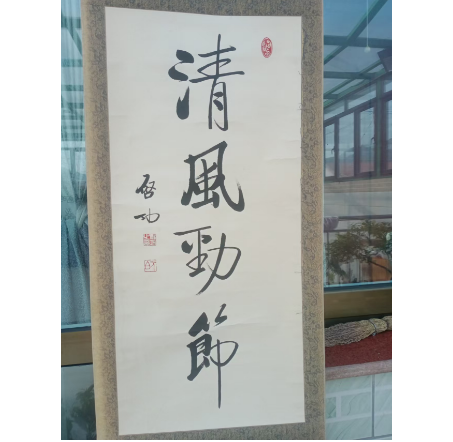 清風勁節
啟功